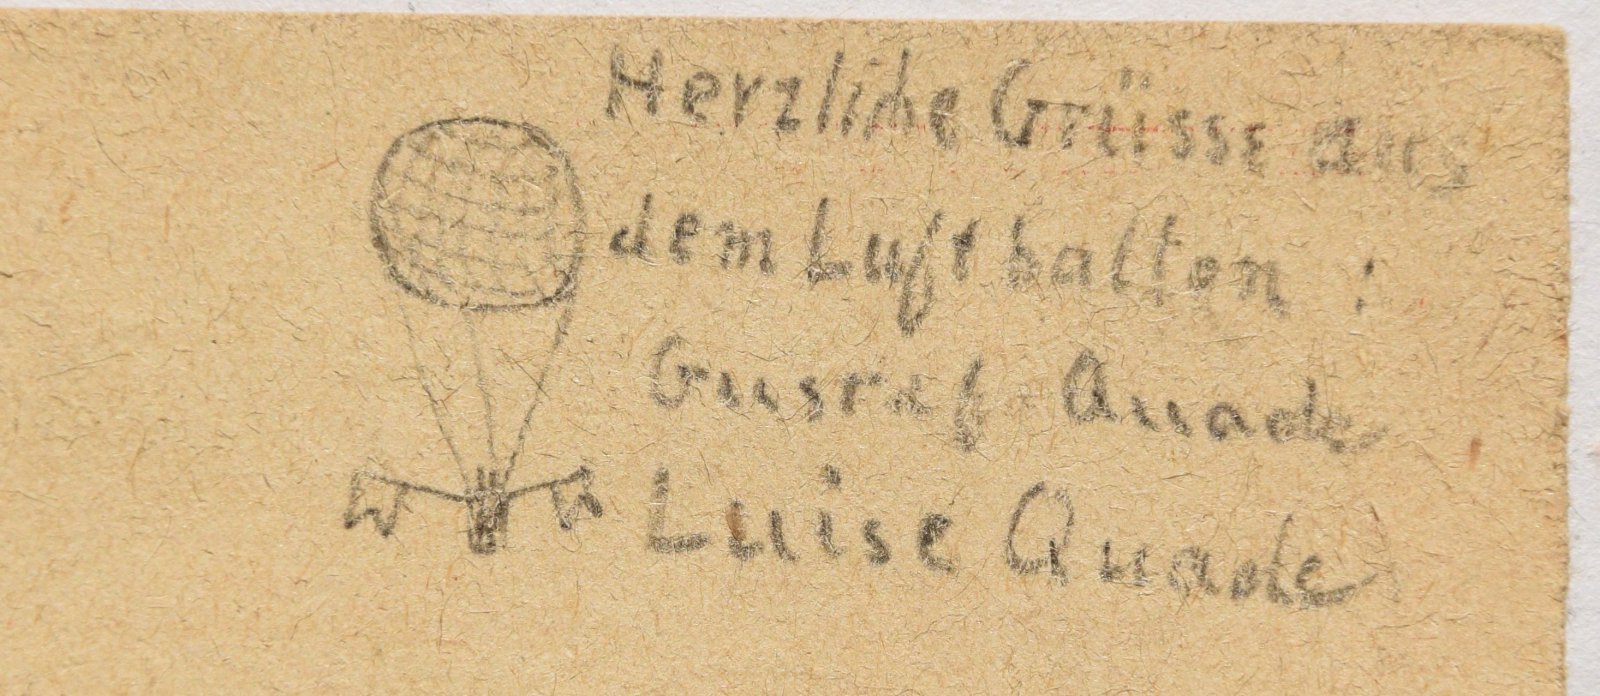 Herzliche Grüsse aus
dem Luftballon :
Gustaf Quade
Luise Quade